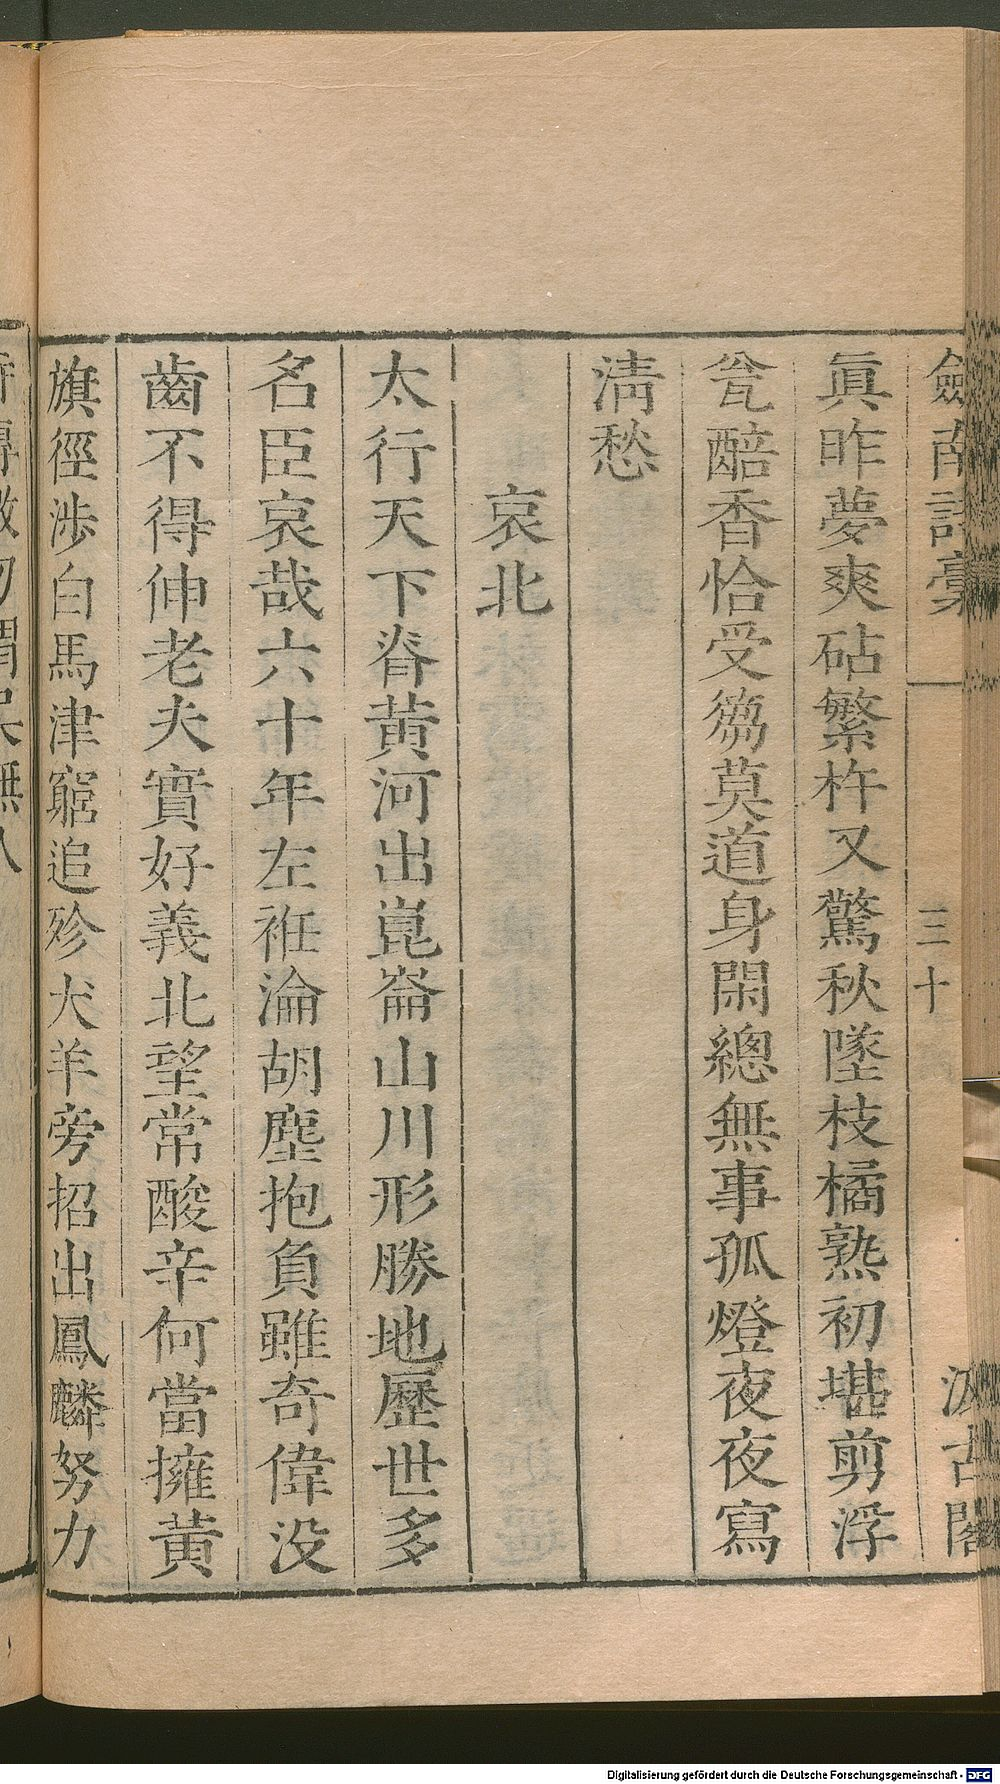 劒南詩藁
三十
汲古閣
眞昨夢爽砧繁杵又驚秋墜枝橘熟初堪剪浮
瓮醅香恰受篘莫道身閑總無事孤燈夜夜寫
淸愁
哀北
太行天下脊黄河出崑崙山川形勝地歷世多
名臣哀哉六十年左袵淪胡塵抱負雖奇偉没
齒不得伸老夫實好義北望常酸辛何當擁黄
旗徑涉白馬津窮追殄犬羊旁招出鳳麟努力
Digitalisierung gefördert durch die Deutsche Forschungsgemeinschaft - DFG